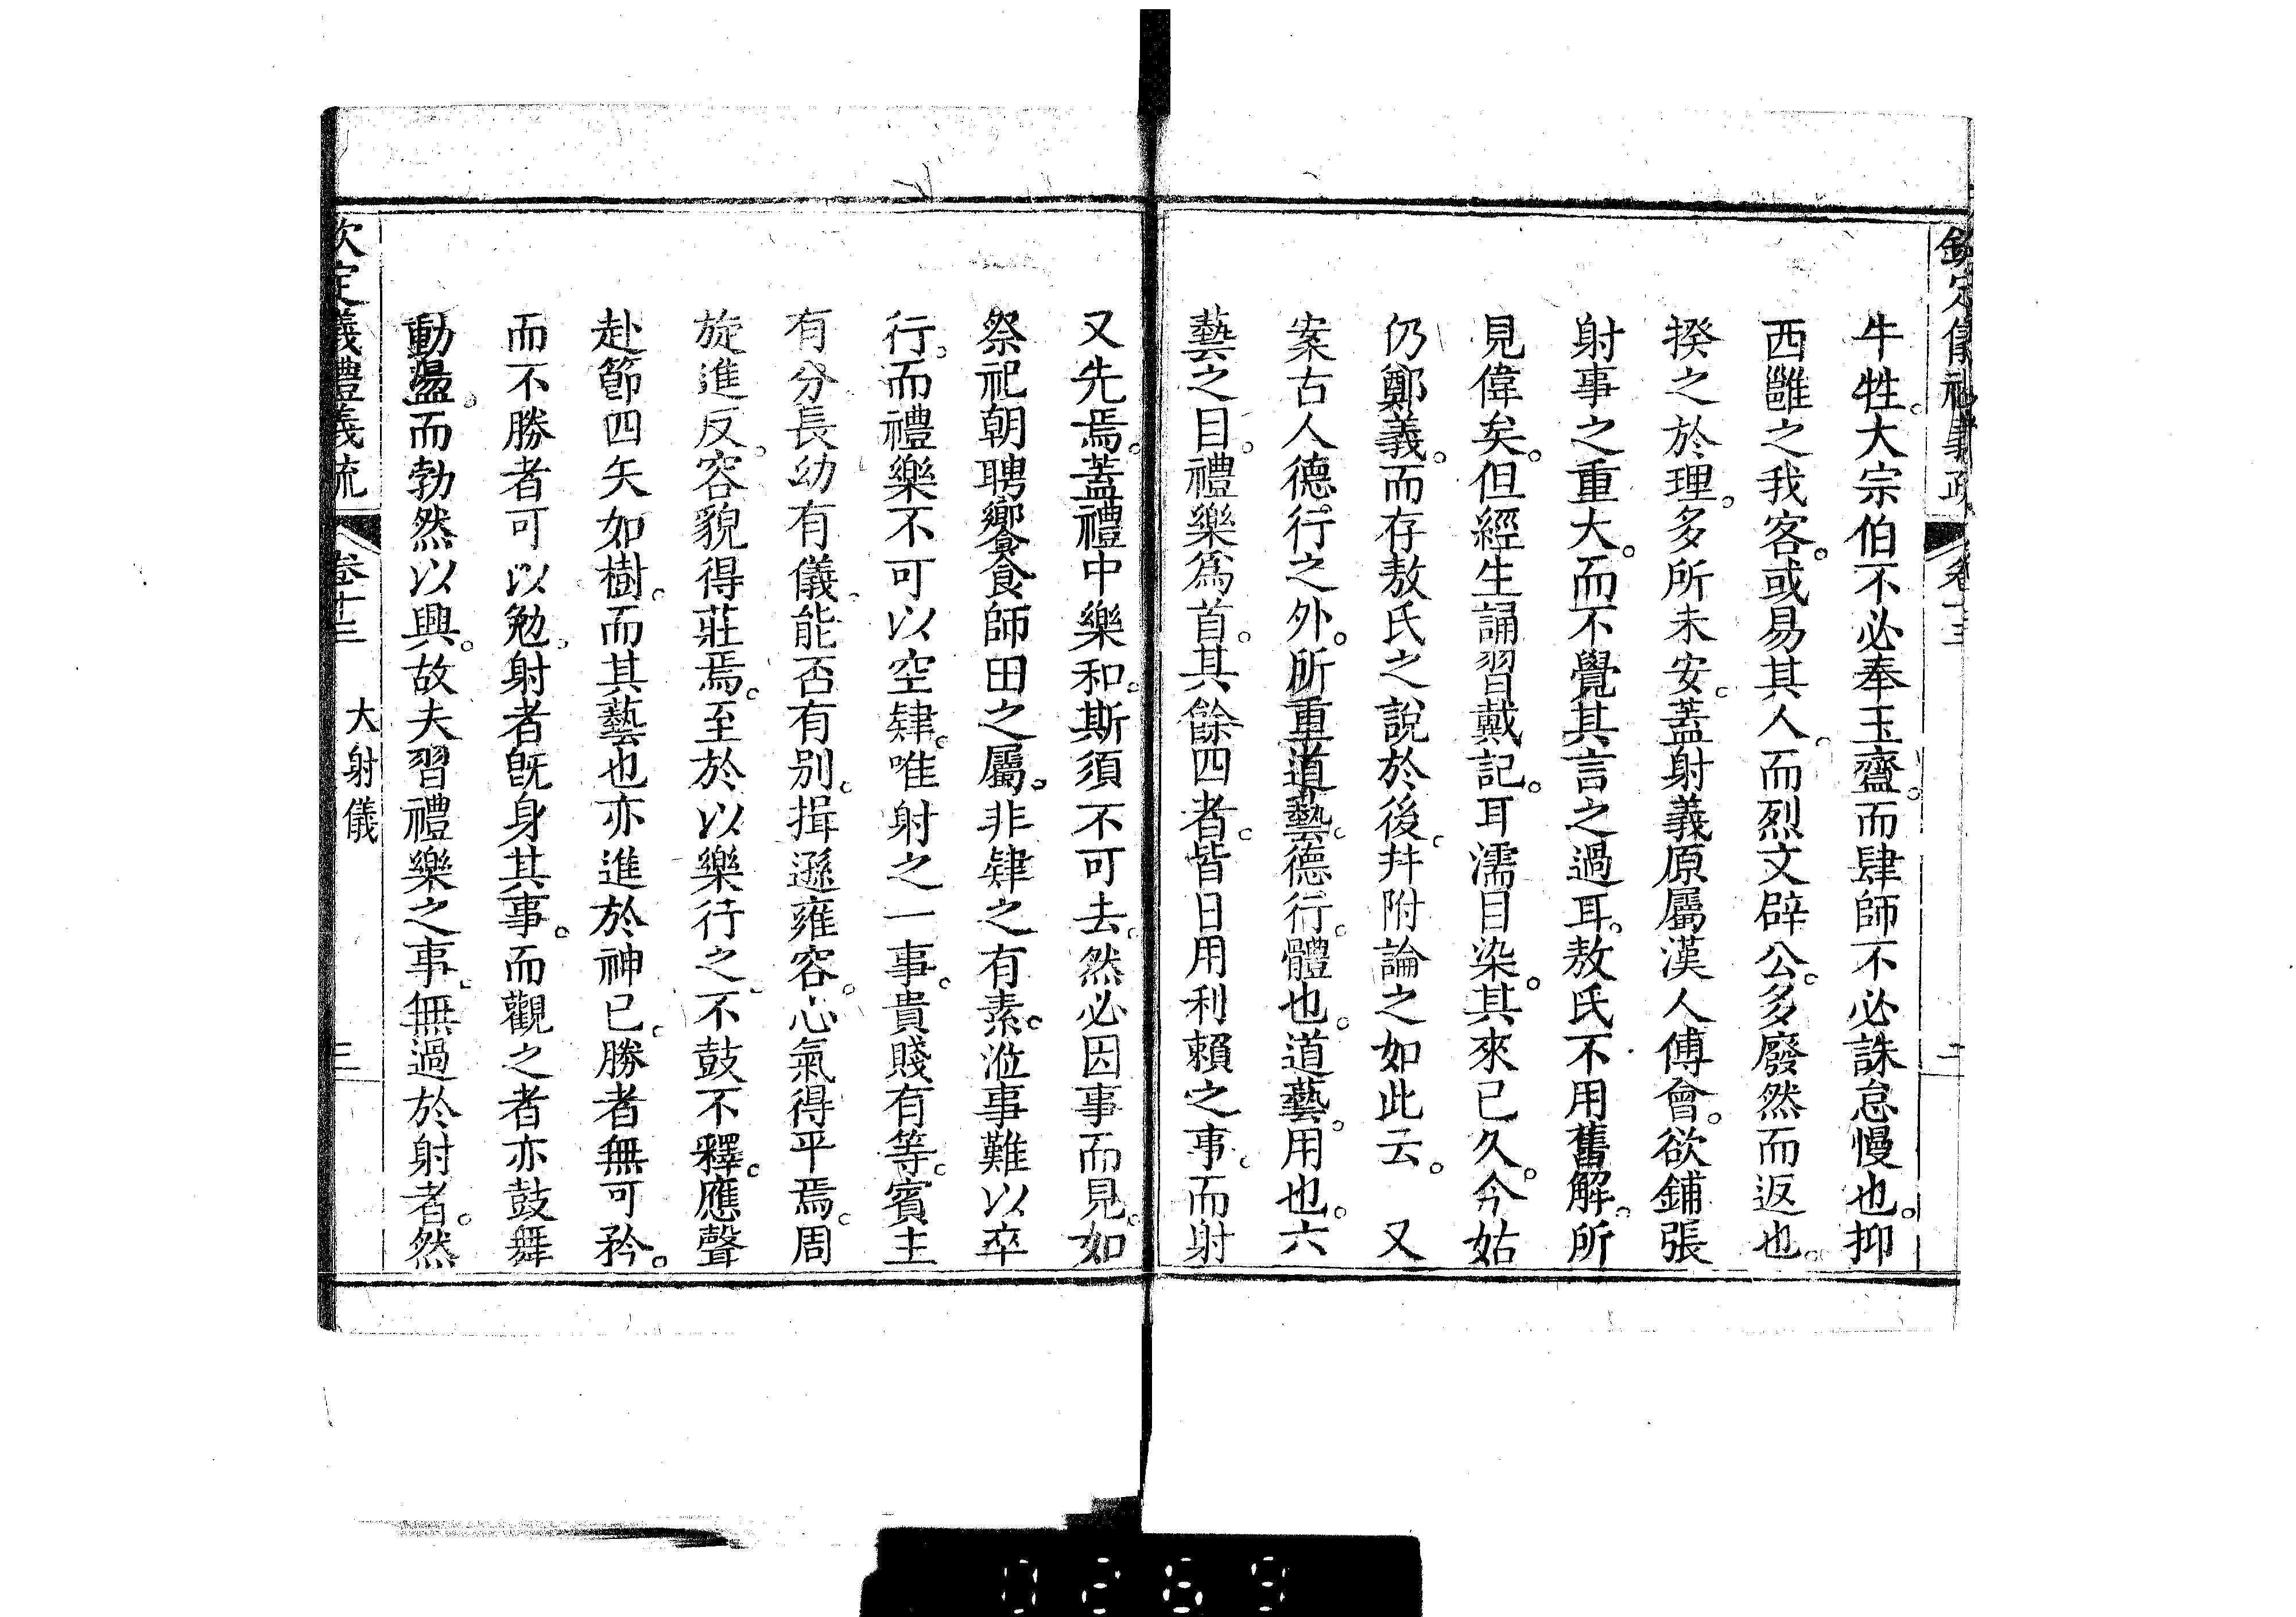 欽定儀禮義疏 卷十三 二
牛牲。大宗伯不必奉玉齍。而肆師不必誅怠慢也。抑
西雝之我客。或易其人。而烈文辟公。多廢然而返也。
揆之於理。多所未安。葢射義原屬漢人傅會。欲鋪張
射事之重大。而不覺其言之過耳。敖氏不用舊解。所
見偉矣。但經生誦習戴記。耳濡目染。其來已久。今姑
仍鄭義。而存敖氏之說於後。幷附論之如此云。 又
案古人德行之外。所重道藝。德行。體也。道藝。用也。六
藝之目。禮樂爲首。其餘四者。皆日用利賴之事。而射
又先焉。葢禮中樂和。斯須不可去。然必因事而見。如
祭祀朝聘饗食師田之屬。非肄之有素。涖事難以卒
行。而禮樂不可以空肄。唯射之一事。貴賤有等。賓主
有分。長幼有儀。能否有別。揖遜雍容。心氣得平焉。周
旋進反。容貌得莊焉。至於以樂行之。不鼓不釋。應聲
赴節。四矢如樹。而其藝也亦進於神已。勝者無可矜。
而不勝者可以勉。射者旣身其事。而觀之者亦鼓舞
動盪。而勃然以興。故夫習禮樂之事。無過於射者。然
欽定儀禮義疏 卷十三 大射儀 三
0269